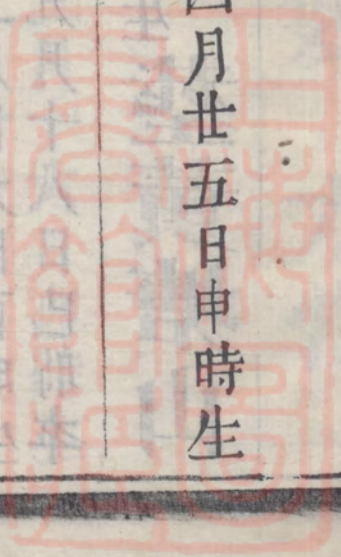 月廿五日申時生